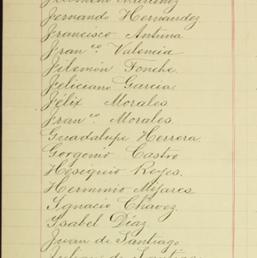 Fernando Hernandez
Francisco Antuna
Fran.co Valencia
Filemón
Feliciano Garcia
Félix Morales
Fran.co Morales
Guadalupe Herrera
Gorgonio Castro
Hesiquio Reyes
Herminio Mejares
Ignacio Chavez
Ysabel Díaz
Juan de Santiago